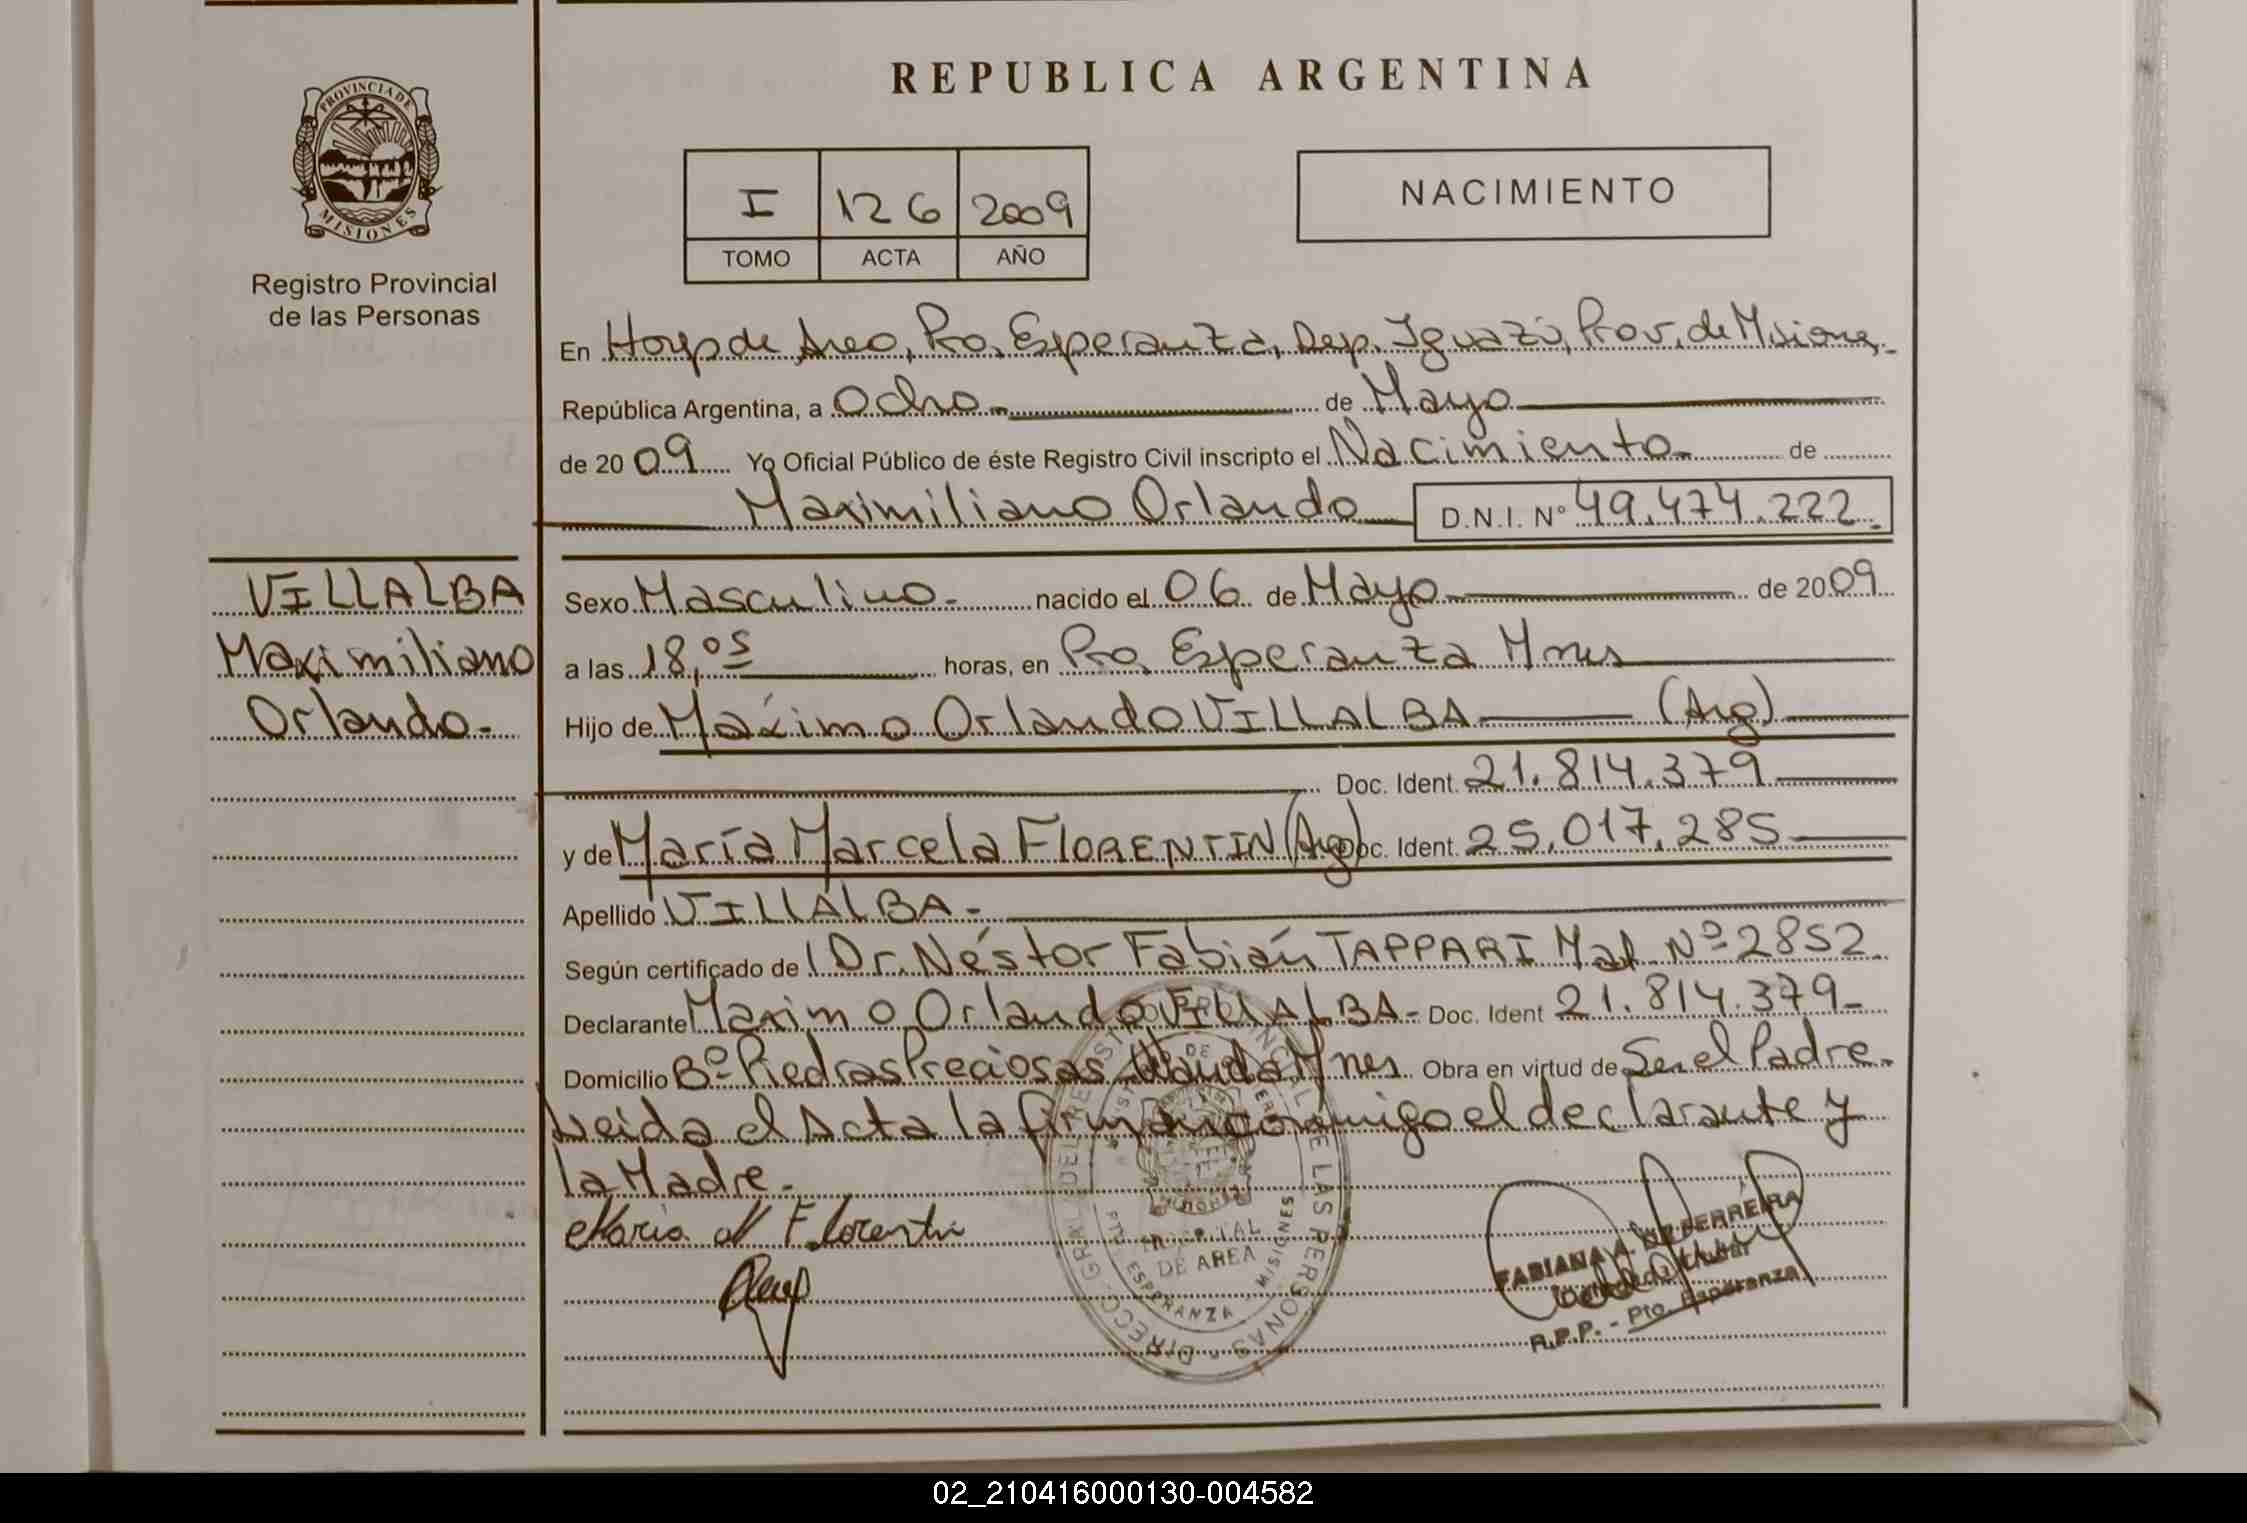 REPUBLICA ARGENTINA
PROVINCIA DE
MISIONES
Registro Provincial
de las Personas
I 126 2009
TOMO ACTA AÑO
NACIMIENTO
En Hosp de Area, Pto. Esperanza, Dep. Iguazú, Prov. de Misiones,
República Argentina, a Ocho de Mayo
de 2009 Yo Oficial Público de éste Registro Civil inscripto el Nacimiento de
Maximiliano Orlando D.N.I. Nº 49.474.222
VILLALBA
Maximiliano
Orlando
Sexo Masculino nacido el 06 de Mayo de 2009
a las 18,05 horas, en Pto. Esperanza Mnes
Hijo de Máximo Orlando VILLALBA (Arg)
Doc. Ident. 21.814.379
y de María Marcela FLORENTIN (Arg) Doc. Ident. 25.017.285
Apellido VILLALBA
Según certificado de Dr. Néstor Fabián TAPPARI Mat. Nº 2852
Declarante Maximo Orlando VILLALBA Doc. Ident 21.814.379
Domicilio Bº Piedras Preciosas Wanda Mnes Obra en virtud de Ser el Padre.
Leida el Acta la firman conmigo el declarante y
la Madre.
Maria M Florentin
HOSPITAL
DE AREA
PTO. ESPERANZA MISIONES
FABIANA A. DE FERREIRA
R.P.P. - Pto. Esperanza
02_210416000130-004582